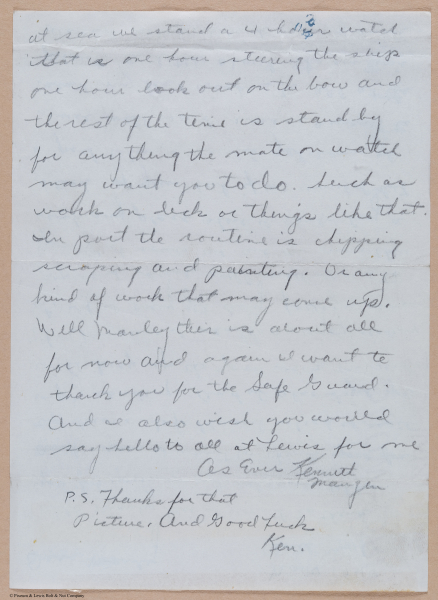 at sea we stand a 4 hour watch
that is one hour steering the ship
one hour look out on the bow and
the rest of the time is stand by
for anything the mate on watch
may want you to do. Such as
work on deck or things like that.
In port the routine is chipping
scraping and painting. Or any
kind of work that may come up.
Well Manley this is about all
for now and again I want to
thank you for the Safe Guard.
And I also wish you would
say hello to all at Lewis for me
As Ever Kenneth
P.S. Thanks for that
Picture. And Good Luck.
Ken.
© Firemen & Lewis Bolt & Nut Company